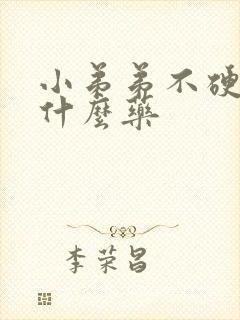 小弟弟不硬
什麼藥
李荣昌